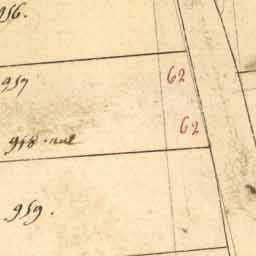 956.
957
62
62
918 · nul
959.